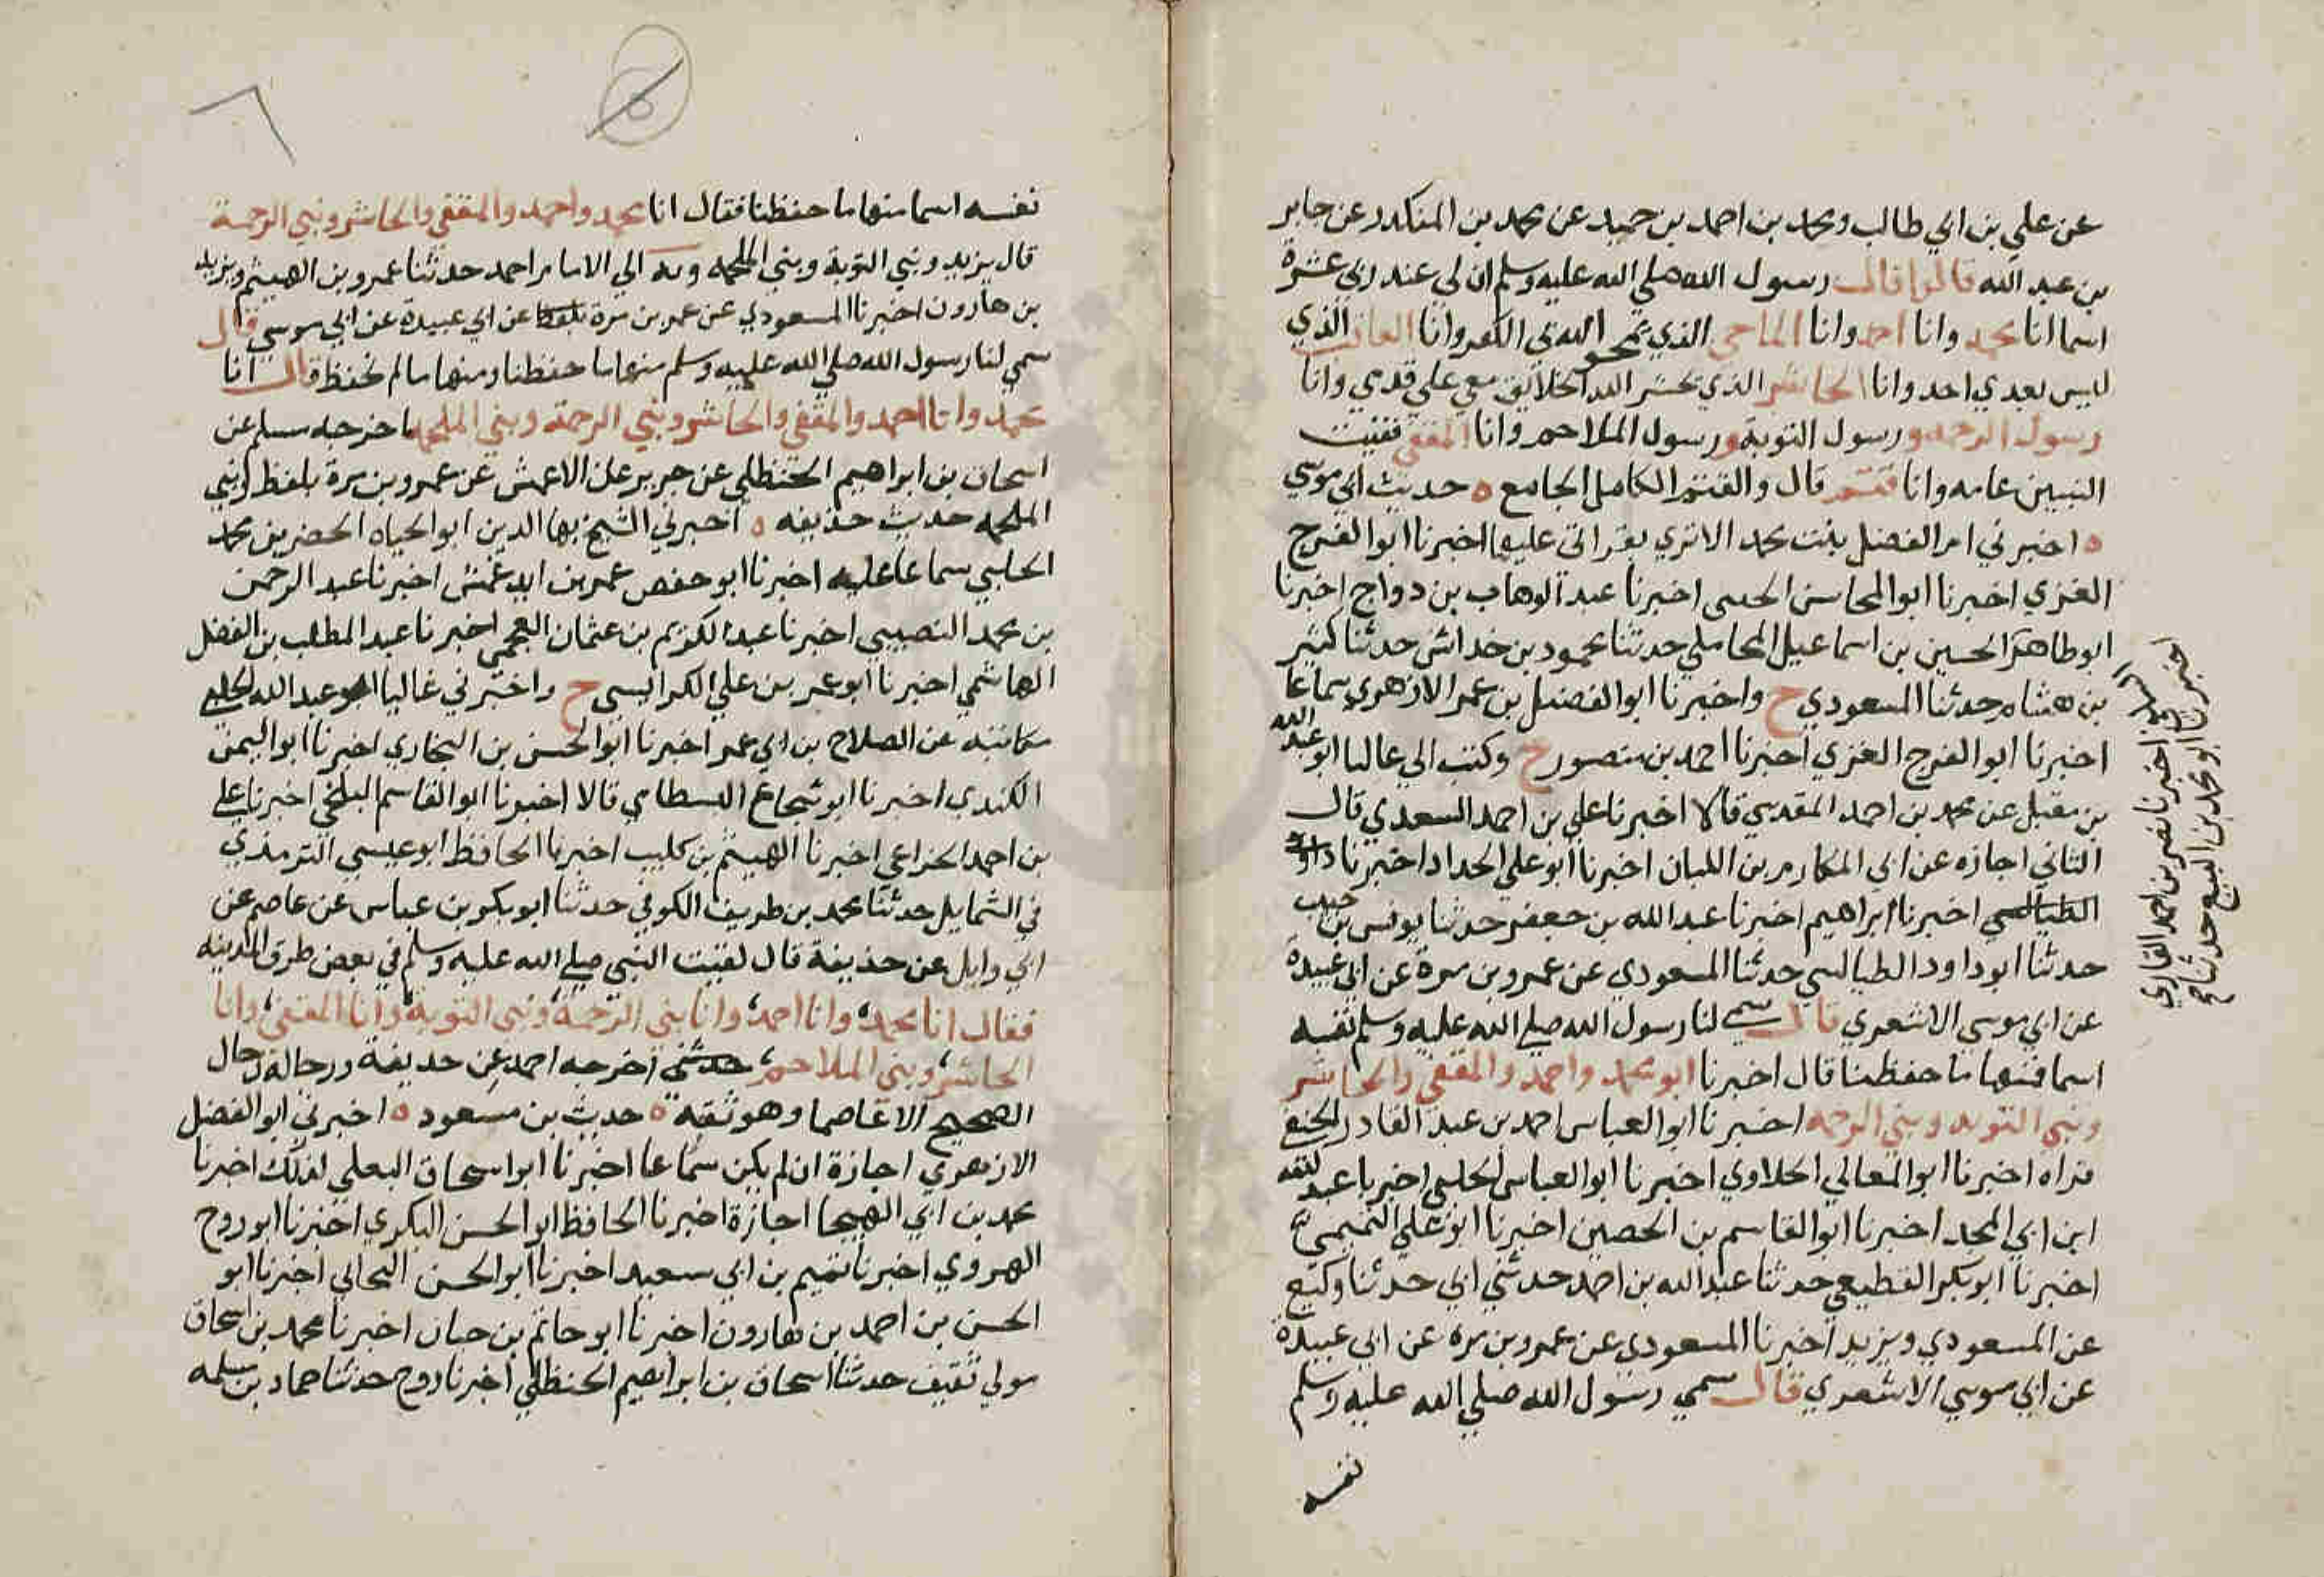 عن علي بن ابي طالب ومحمد بن احمد بن حميد عن محمد بن المنكدر عن جابر
بن عبد الله قالوا قال رسول الله صلي الله عليه وسلم ان لي عند ربي عشرة
اسما انا محمد وانا احمد وانا الماحي الذي يمحو الله بي الكفر وانا العاقب الذي
ليس بعدي احد وانا الحاشر الذي يحشر الله الخلايق معي علي قدمي وانا
رسول الرحمه ورسول التوبة ورسول الملاحم وانا المقفي قفيت
النبيين عامه وانا قثم قال والقثم الكامل الجامع ه حديث ابي موسي
ه اخبرتني ام الفضل بنت محمد الاثري بقراتي عليها اخبرنا ابو الفرج
الغزي اخبرنا ابو المحاسن اخبرنا عبد الوهاب بن رواج اخبرنا
ابو طاهر الحسين بن اسماعيل المحاملي حدثنا محمود بن خداش حدثنا كثير
بن هشام حدثنا المسعودي ح واخبرنا ابو الفضل بن عمر الازهري سماعا
اخبرنا ابو الفرج الغزي اخبرنا احمد بن منصور ح وكتب الي عاليا ابو عبد الله
بن مقبل عن محمد بن احمد المقدسي قالا اخبرنا علي بن احمد السعدي قال
الثاني اجازه عن ابي المكارم بن اللبان اخبرنا ابو علي الحداد اخبرنا
اخبرنا ابراهيم اخبرنا عبد الله بن جعفر حدثنا يونس بن حبيب
حدثنا ابو داود الطيالسي حدثنا المسعودي عن عمرو بن مرة عن ابي عبيدة
عن ابي موسي الاشعري قال سمي لنا رسول الله صلي الله عليه وسلم نفسه
اسما فمنها ما حفظنا قال اخبرنا ابو محمد واحمد والمقفي والحاشر
ونبي التوبه ونبي الرحمه اخبرنا ابو العباس احمد بن عبد القادر الحنفي
قراه اخبرنا ابو المعالي الحلاوي اخبرنا ابو العباس الحلبي اخبرنا عبد
ابن ابي المجد اخبرنا ابو القاسم بن الحصين اخبرنا ابو علي التميمي
اخبرنا ابو بكر القطيعي حدثنا عبد الله بن احمد حدثني ابي حدثنا وكيع
عن المسعودي ويزيد اخبرنا المسعودي عن عمرو بن مره عن ابي عبيدة
عن ابي موسي الاشعري قال سمي رسول الله صلي الله عليه وسلم
نفسه
اخبرنا نصر بن احمد القاري
اخبرنا ابو محمد بن البيع حدثنا ح
نفسه اسما منها ما حفظنا فقال انا محمد واحمد والمقفي والحاشر ونبي الرحمة
قال يزيد ونبي التوبة ونبي الملحمه وبه الي الامام احمد حدثنا عمرو بن الهيثم ويزيد
بن هارون اخبرنا المسعودي عن عمر بن مرة عن ابي عبيدة عن ابي موسي قال
سمي لنا رسول الله صلي الله عليه وسلم منها ما حفظنا ومنها ما لم نحفظ قال انا
محمد وانا احمد والمقفي والحاشر ونبي الرحمة ونبي الملحمه اخرجه مسلم عن
اسحاق بن ابراهيم الحنظلي عن جرير عن الاعمش عن عمرو بن مرة بلفظ ونبي
الملحمه حديث حذيفه ه اخبرني الشيخ بها الدين ابو الحياه الخضر بن محمد
الحلبي سماعا عليه اخبرنا ابو حفص عمر بن ايدغمش اخبرنا عبد الرحمن
بن محمد النصيبي اخبرنا عبد الكريم بن عثمان العجمي اخبرنا عبد المطلب بن الفضل
الهاشمي اخبرنا ابو عمر بن علي الكرابيسي ح واخبرني عاليا ابو عبد الله الحلبي
مكاتبه عن الصلاح بن ابي عمر اخبرنا ابو الحسن بن البخاري اخبرنا ابو اليمن
الكندي اخبرنا ابو شجاع البسطامي قالا اخبرنا ابو القاسم البلخي اخبرنا علي
بن احمد الخزاعي اخبرنا الهيثم بن كليب اخبرنا الحافظ ابو عيسي الترمذي
في الشمايل حدثنا محمد بن طريف الكوفي حدثنا ابو بكر بن عياس عن عاصم عن
ابي وايل عن حذيفة قال لقيت النبي صلي الله عليه وسلم في بعض طرق المدينه
فقال انا محمد، وانا احمد، وانا نبي الرحمة، ونبي التوبة، وانا المقفي، وانا
الحاشر، ونبي الملاحم، اخرجه احمد عن حديفة ورجاله رجال
الصحيح الا عاصما وهو ثقه ه حديث بن مسعود ه اخبرني ابو الفضل
الازهري اجازة ان لم يكن سماعا اخبرنا ابو اسحاق البعلي لذلك اخبرنا
محمد بن ابي الهيجا اجازة اخبرنا الحافظ ابو الحسن البكري اخبرنا ابو روح
الهروي اخبرنا تميم بن ابي سعيد اخبرنا ابو الحسن البحاثي اخبرنا ابو
الحسن بن احمد بن هارون اخبرنا ابو حاتم بن حبان اخبرنا محمد بن اسحاق
مولي ثقيف حدثنا اسحاق بن ابراهيم الحنظلي اخبرنا روح حدثنا حماد بن سلمه